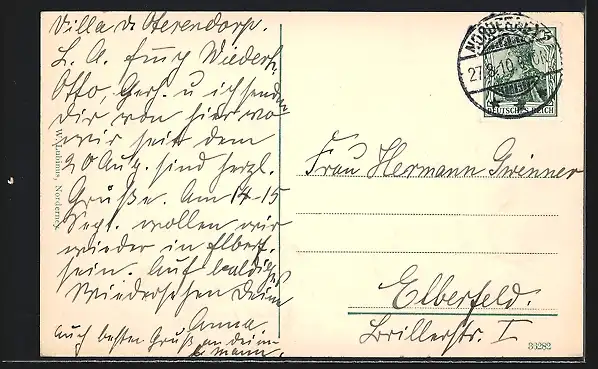 Villa v. Oterendorp.
L. A. Emmy Wiederh.
Otto, Gerh. u ich senden
Dir von hier wo
wir seit dem
20 Aug. sind herzl.
Grüße. Am 14-15
Sept. wollen wir
wieder in Elberf.
sein. Auf baldiges
Wiedersehen Deine
Anna.
Auch besten Gruß an deinen
l. Mann.
W. Lührs, Norderney.
NORDERNEY
27.8.10
DEUTSCHES REICH
Frau Hermann Gwinner
Elberfeld.
Brillerstr. I
36282